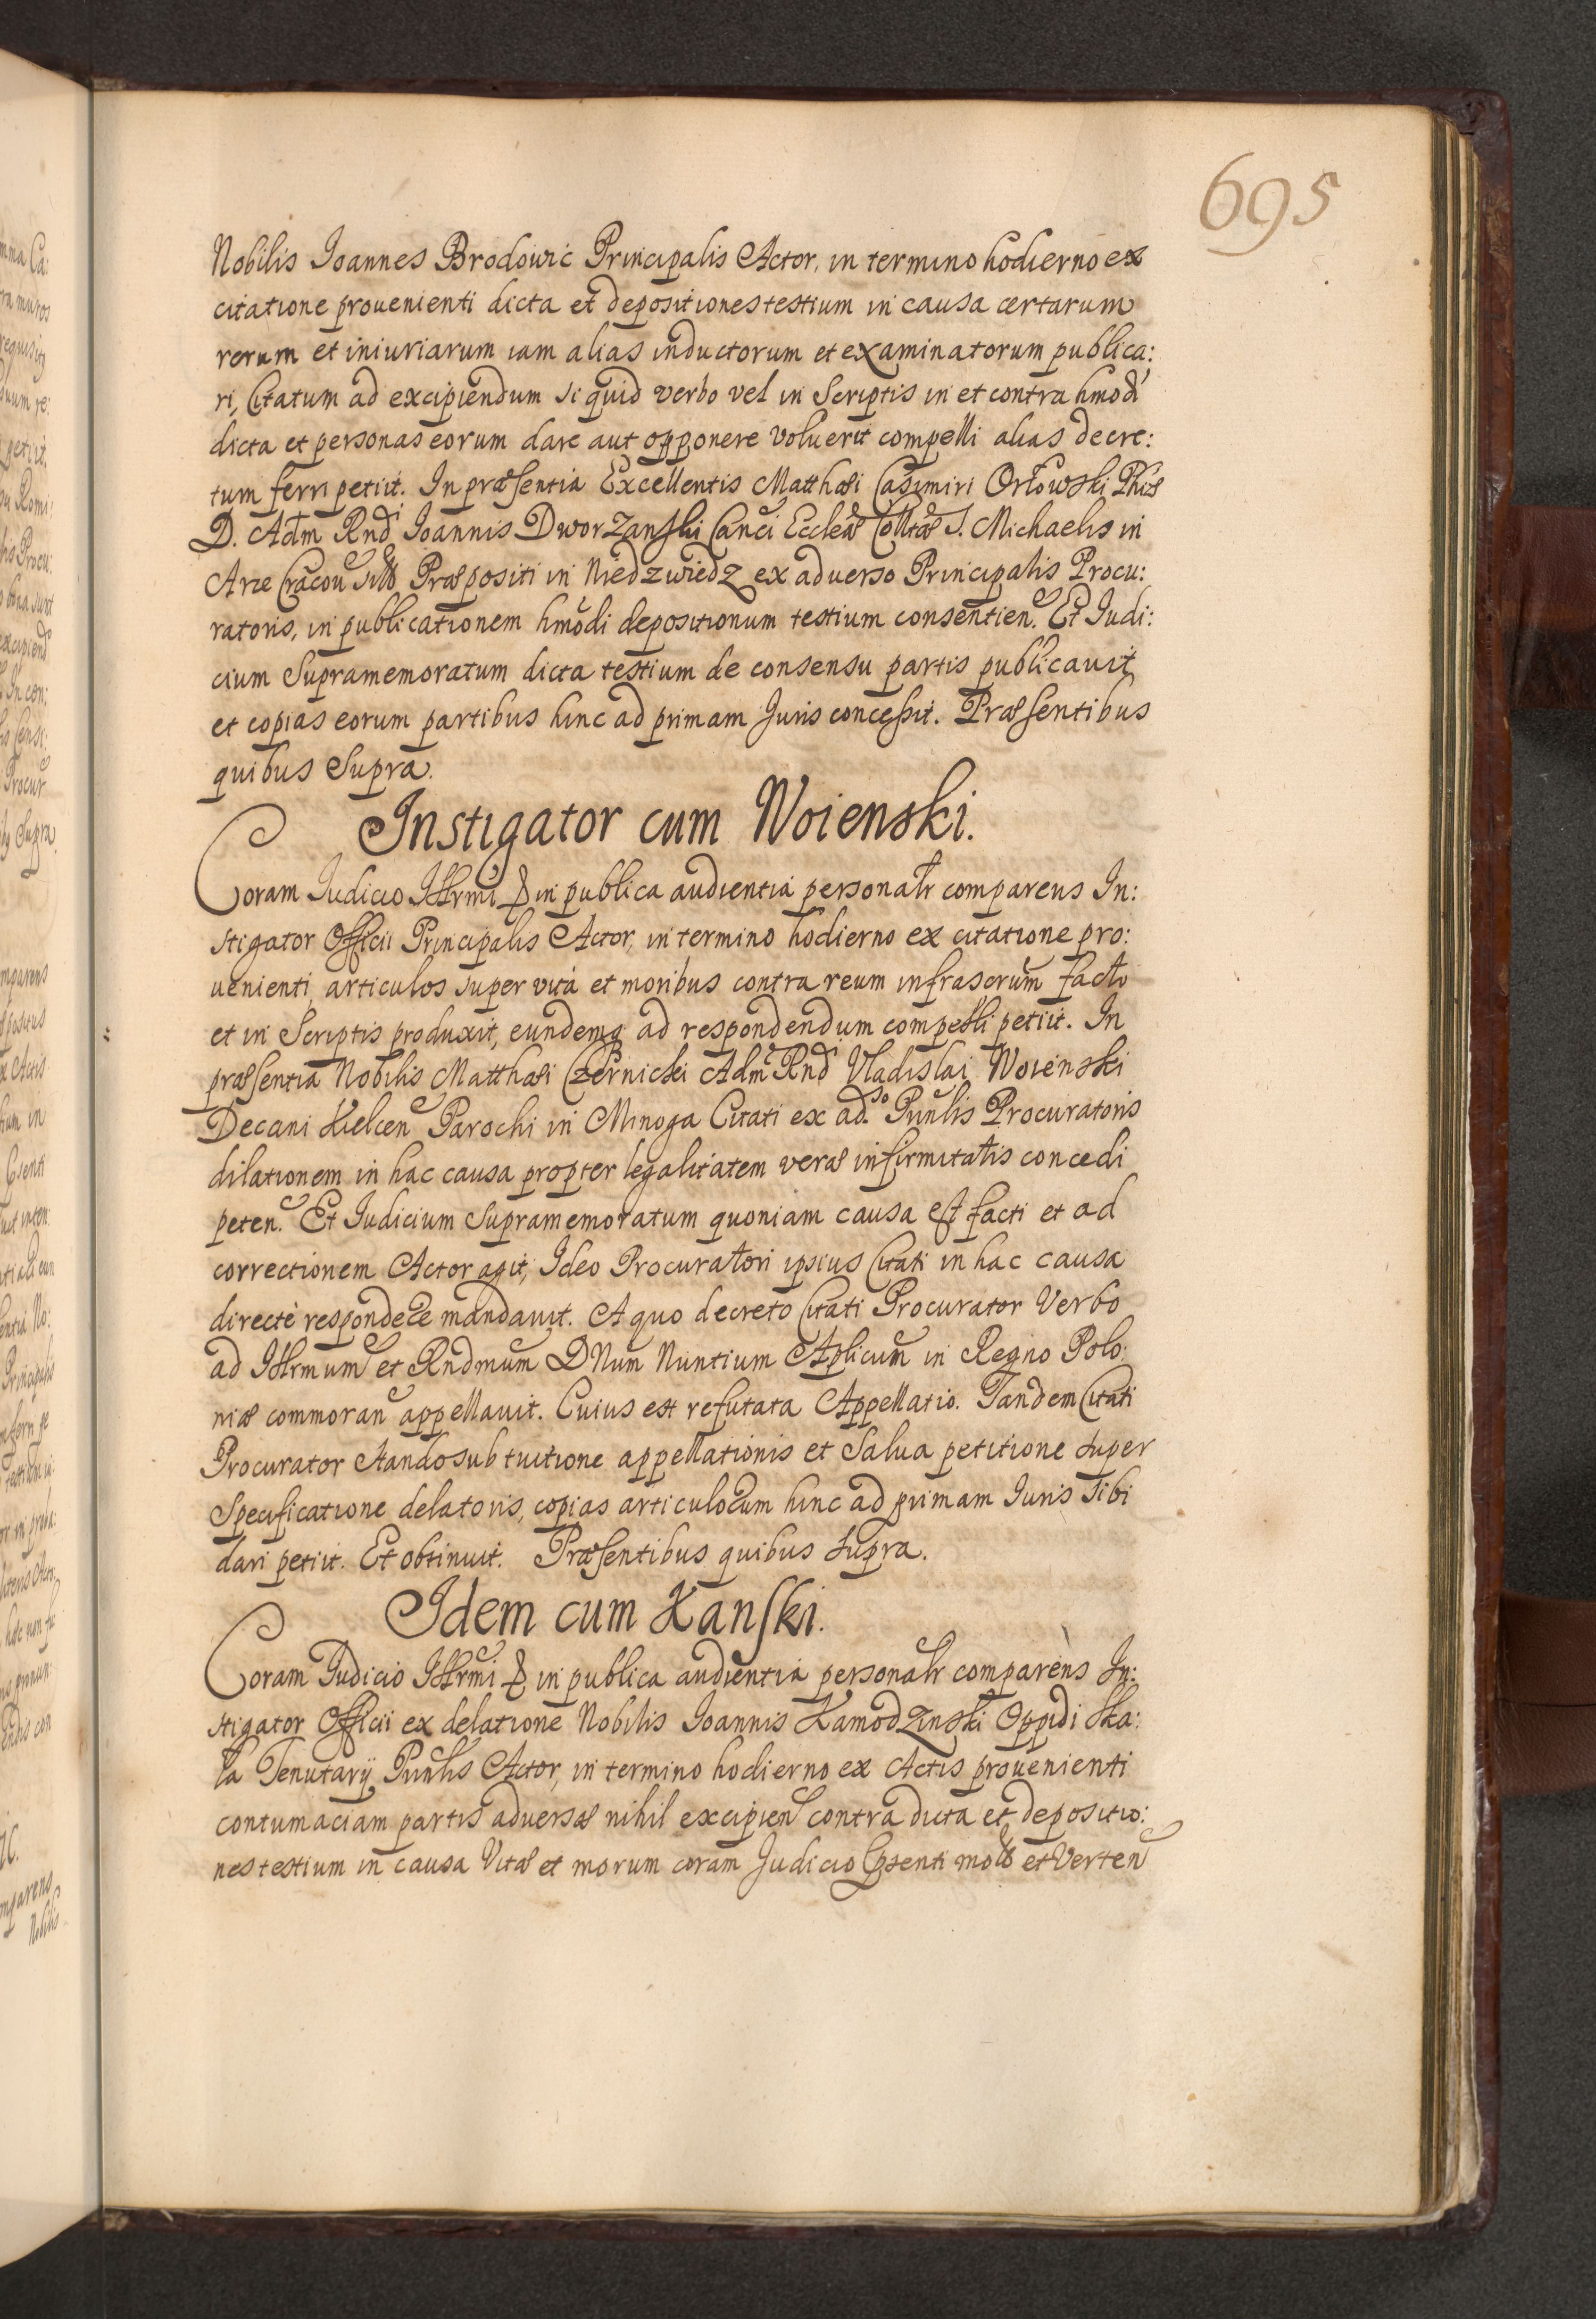 695
Nobilis Joannes Brodowic Principalis Actor, in termino hodierno ex
citatione prouenienti dicta et depositiones testium in causa certarum
rerum et iniuriarum iam alias inductorum et examinatorum publica:
ri, Citatum ad excipiendum si quid verbo vel in Scriptis in et contra hmodi
dicta et personas eorum dare aut opponere voluerit compelli alias decre:
tum ferri petiit. In præsentia Excellentis Matthæi Casimiri Orłowski Phiæ
D. Adm Rndi Joannis Dworzanski Canci Eccleæ Colltæ S. Michaelis in
Arce Cracou Præpositi in Niedzwiedz ex aduerso Principalis Procu:
ratoris, in publicationem hmodi depositionum testium consentien. Et Judi:
cium Supramemoratum dicta testium de consensu partis publicauit
et copias eorum partibus hinc ad primam Juris concessit. Præsentibus
quibus Supra.
Instigator cum Woienski.
Coram Judicio Illrmi & in publica audientia personalr comparens In:
stigator Officii Principalis Actor, in termino hodierno ex citatione pro:
uenienti, articulos super vita et moribus contra reum infrascrum facto
et in Scriptis produxit, eundemq ad respondendum compelli petiit. In
præsentia Nobilis Matthæi Czernicki Adm Rndi Vladislai Woienski
Decani Kielcen Parochi in Minoga Citati ex adso. Pnnlis Procuratoris
dilationem in hac causa propter legalitatem veræ infirmitatis concedi
peten. Et Judicium Supramemoratum quoniam causa est facti et ad
correctionem Actor agit, Ideo Procuratori ipsius Citati in hac causa
directè respondere mandauit. A quo decreto Citati Procurator Verbo
ad Illrmum et Rndmum DNum Nuntium Aplicum in Regno Polo:
niæ commoran appellauit. Cuius est refutata Appellatio. Tandem Citati
Procurator stando sub tuitione appellationis et Salua petitione super
Specificatione delatoris, copias articulorum hinc ad primam Juris sibi
dari petiit. Et obtinuit. Præsentibus quibus supra.
Idem cum Kanski.
Coram Judicio Illrmi & in publica audientia personalr comparens In:
stigator Officii ex delatione Nobilis Joannis Kamodzinski Oppidi Ska:
ła Tenutarij Pnnlis Actor, in termino hodierno ex Actis prouenienti
contumaciam partis aduersæ nihil excipien contra dicta et depositio:
nes testium in causa Vitæ et morum coram Judicio psenti et Verten